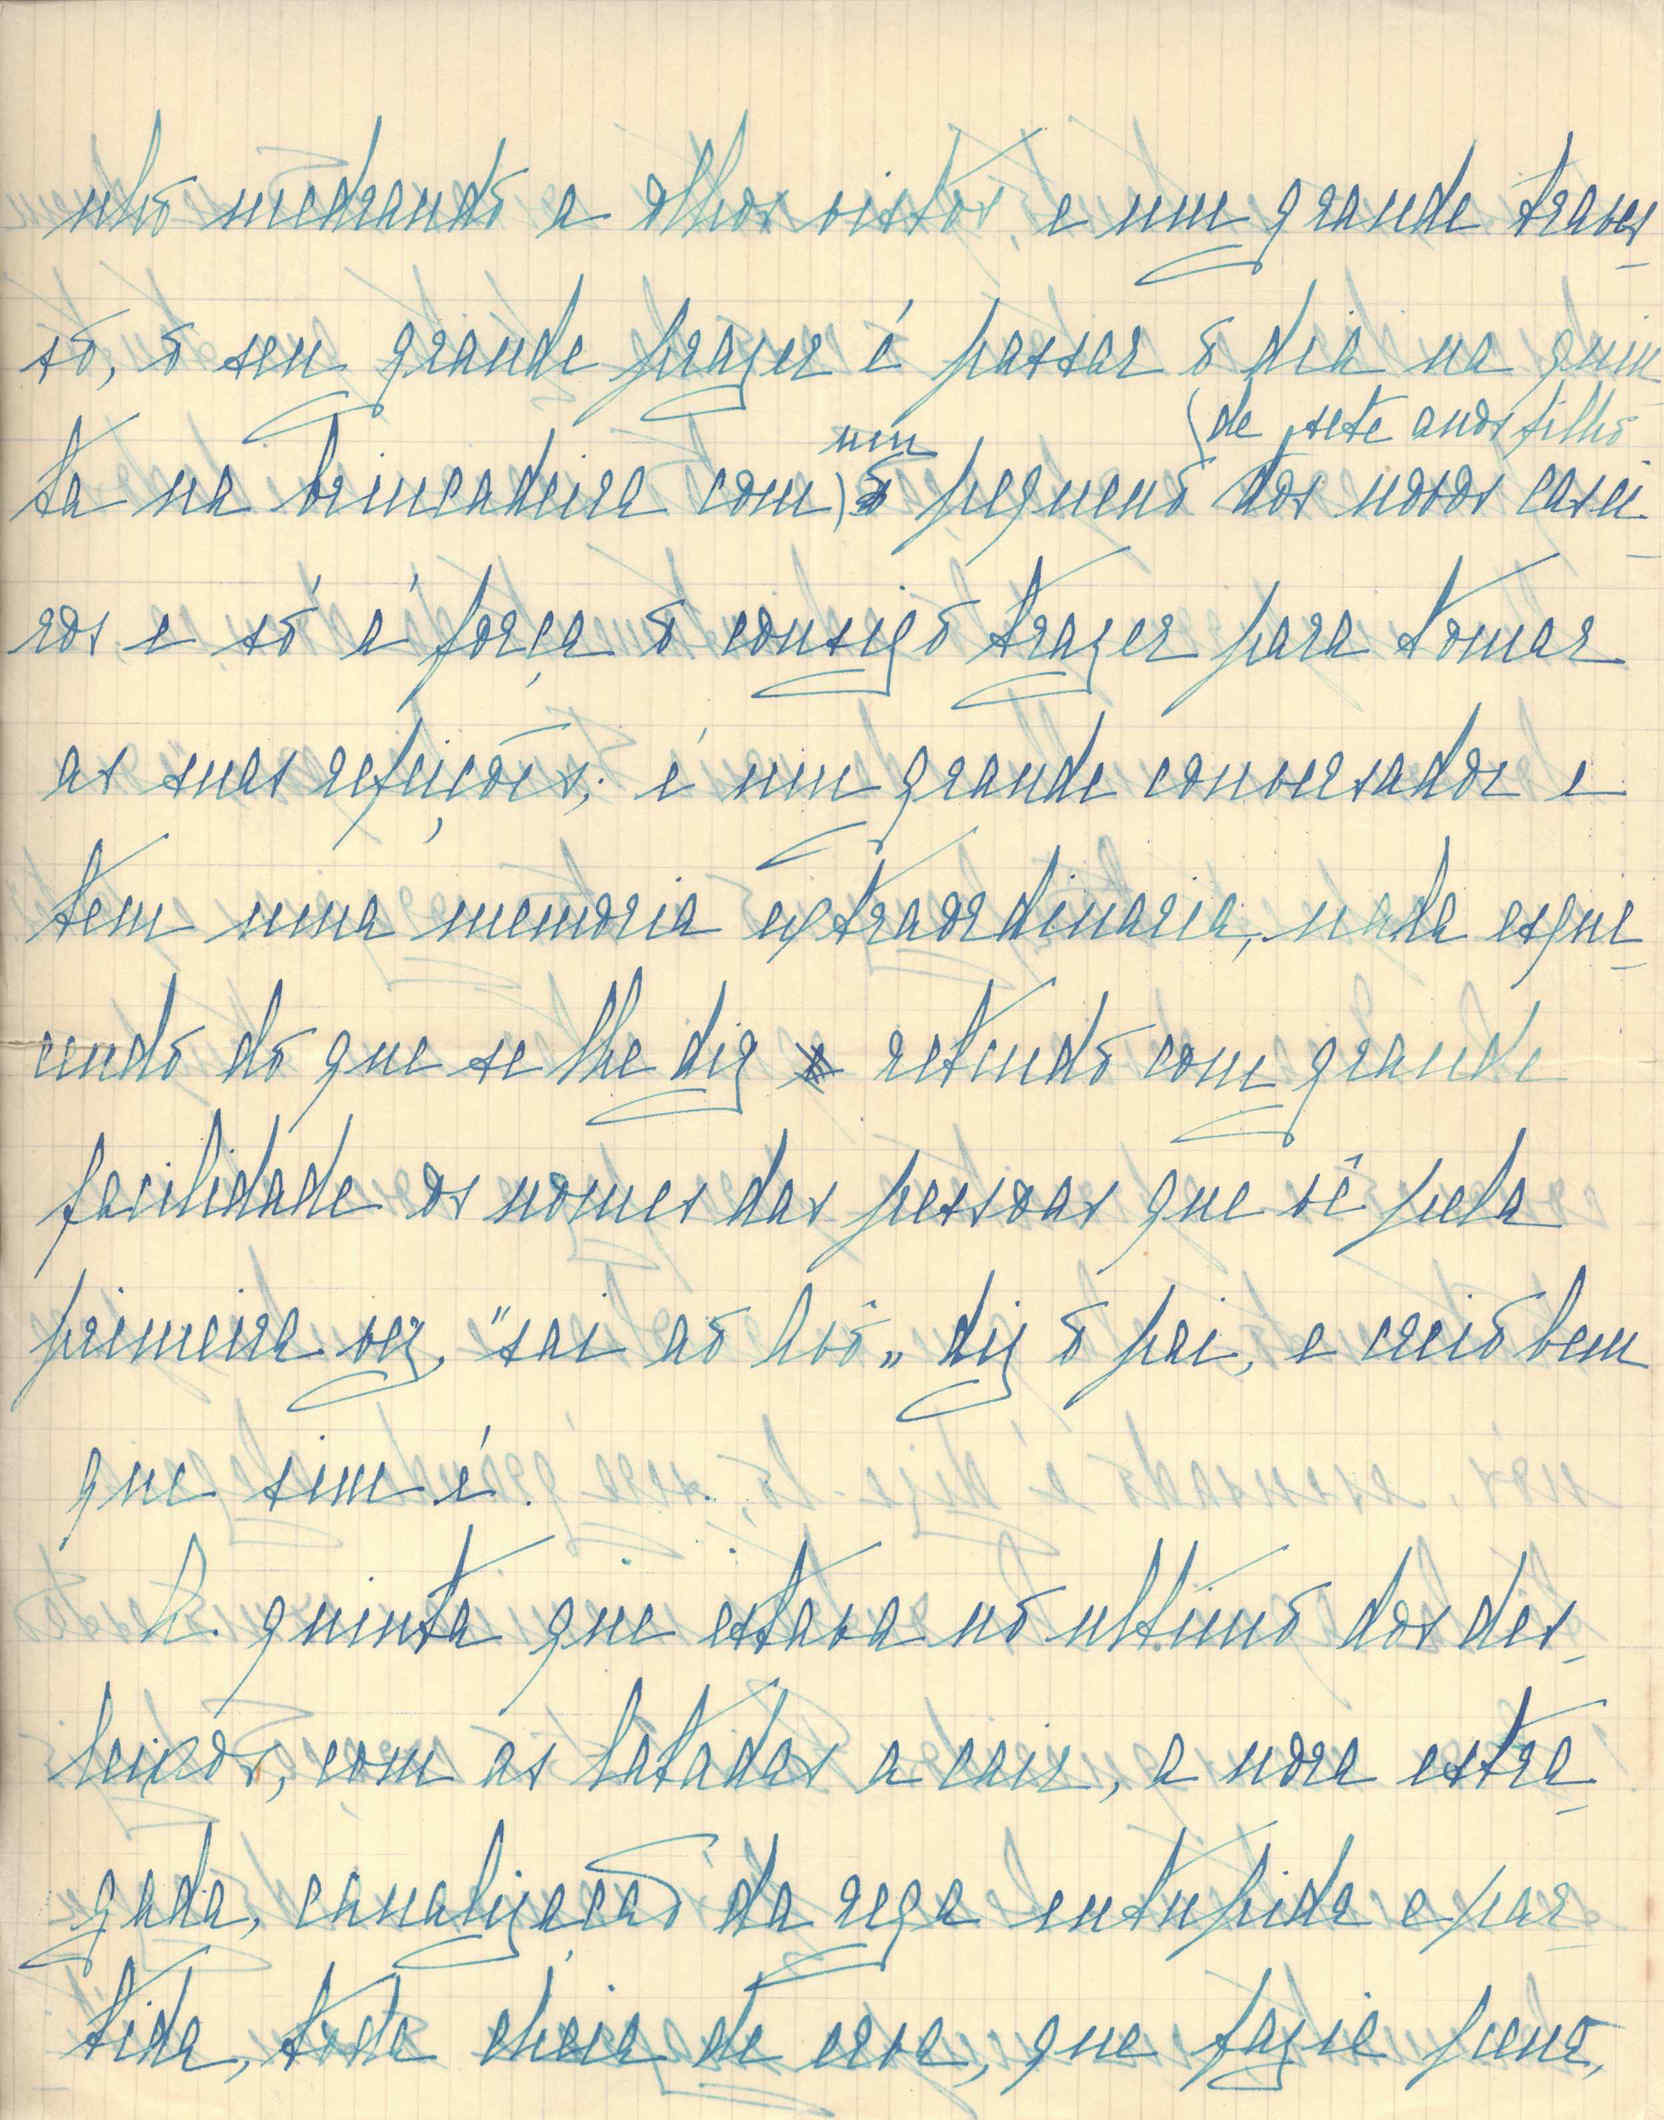 nho medrando a olhos vistos, e um grande traves-
so, o seu grande prazer é passar o dia na quin
de sete anos filho
ta na brincadeira com um pequeno dos novos casei-
ros e só á força o consigo trazer para tomar
as suas refeições; é um grande conversador e
tem uma memoria extraordinaria, nada esque-
cendo do que se lhe diz e retendo com grande
facilidade os nomes das pessoas que vê pela
primeira vez, "sai ao Avô" diz o pai, e creio bem
que sim é.
A quinta que estava no ultimo dos des-
leixos, com as latadas a cair, a nora estra-
gada, canalização da rega entupida e par-
tida, toda cheia de erva, que fazia pena,